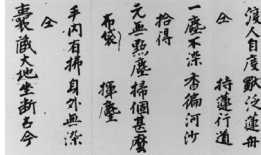 渡人自度駕泛蓮舟
仝 持蓮行道
一塵不染香徧河沙
拾得
元無點塵掃個甚麼
布袋 揮塵
手內有掃身外無染
仝
囊藏大地坐斷古今